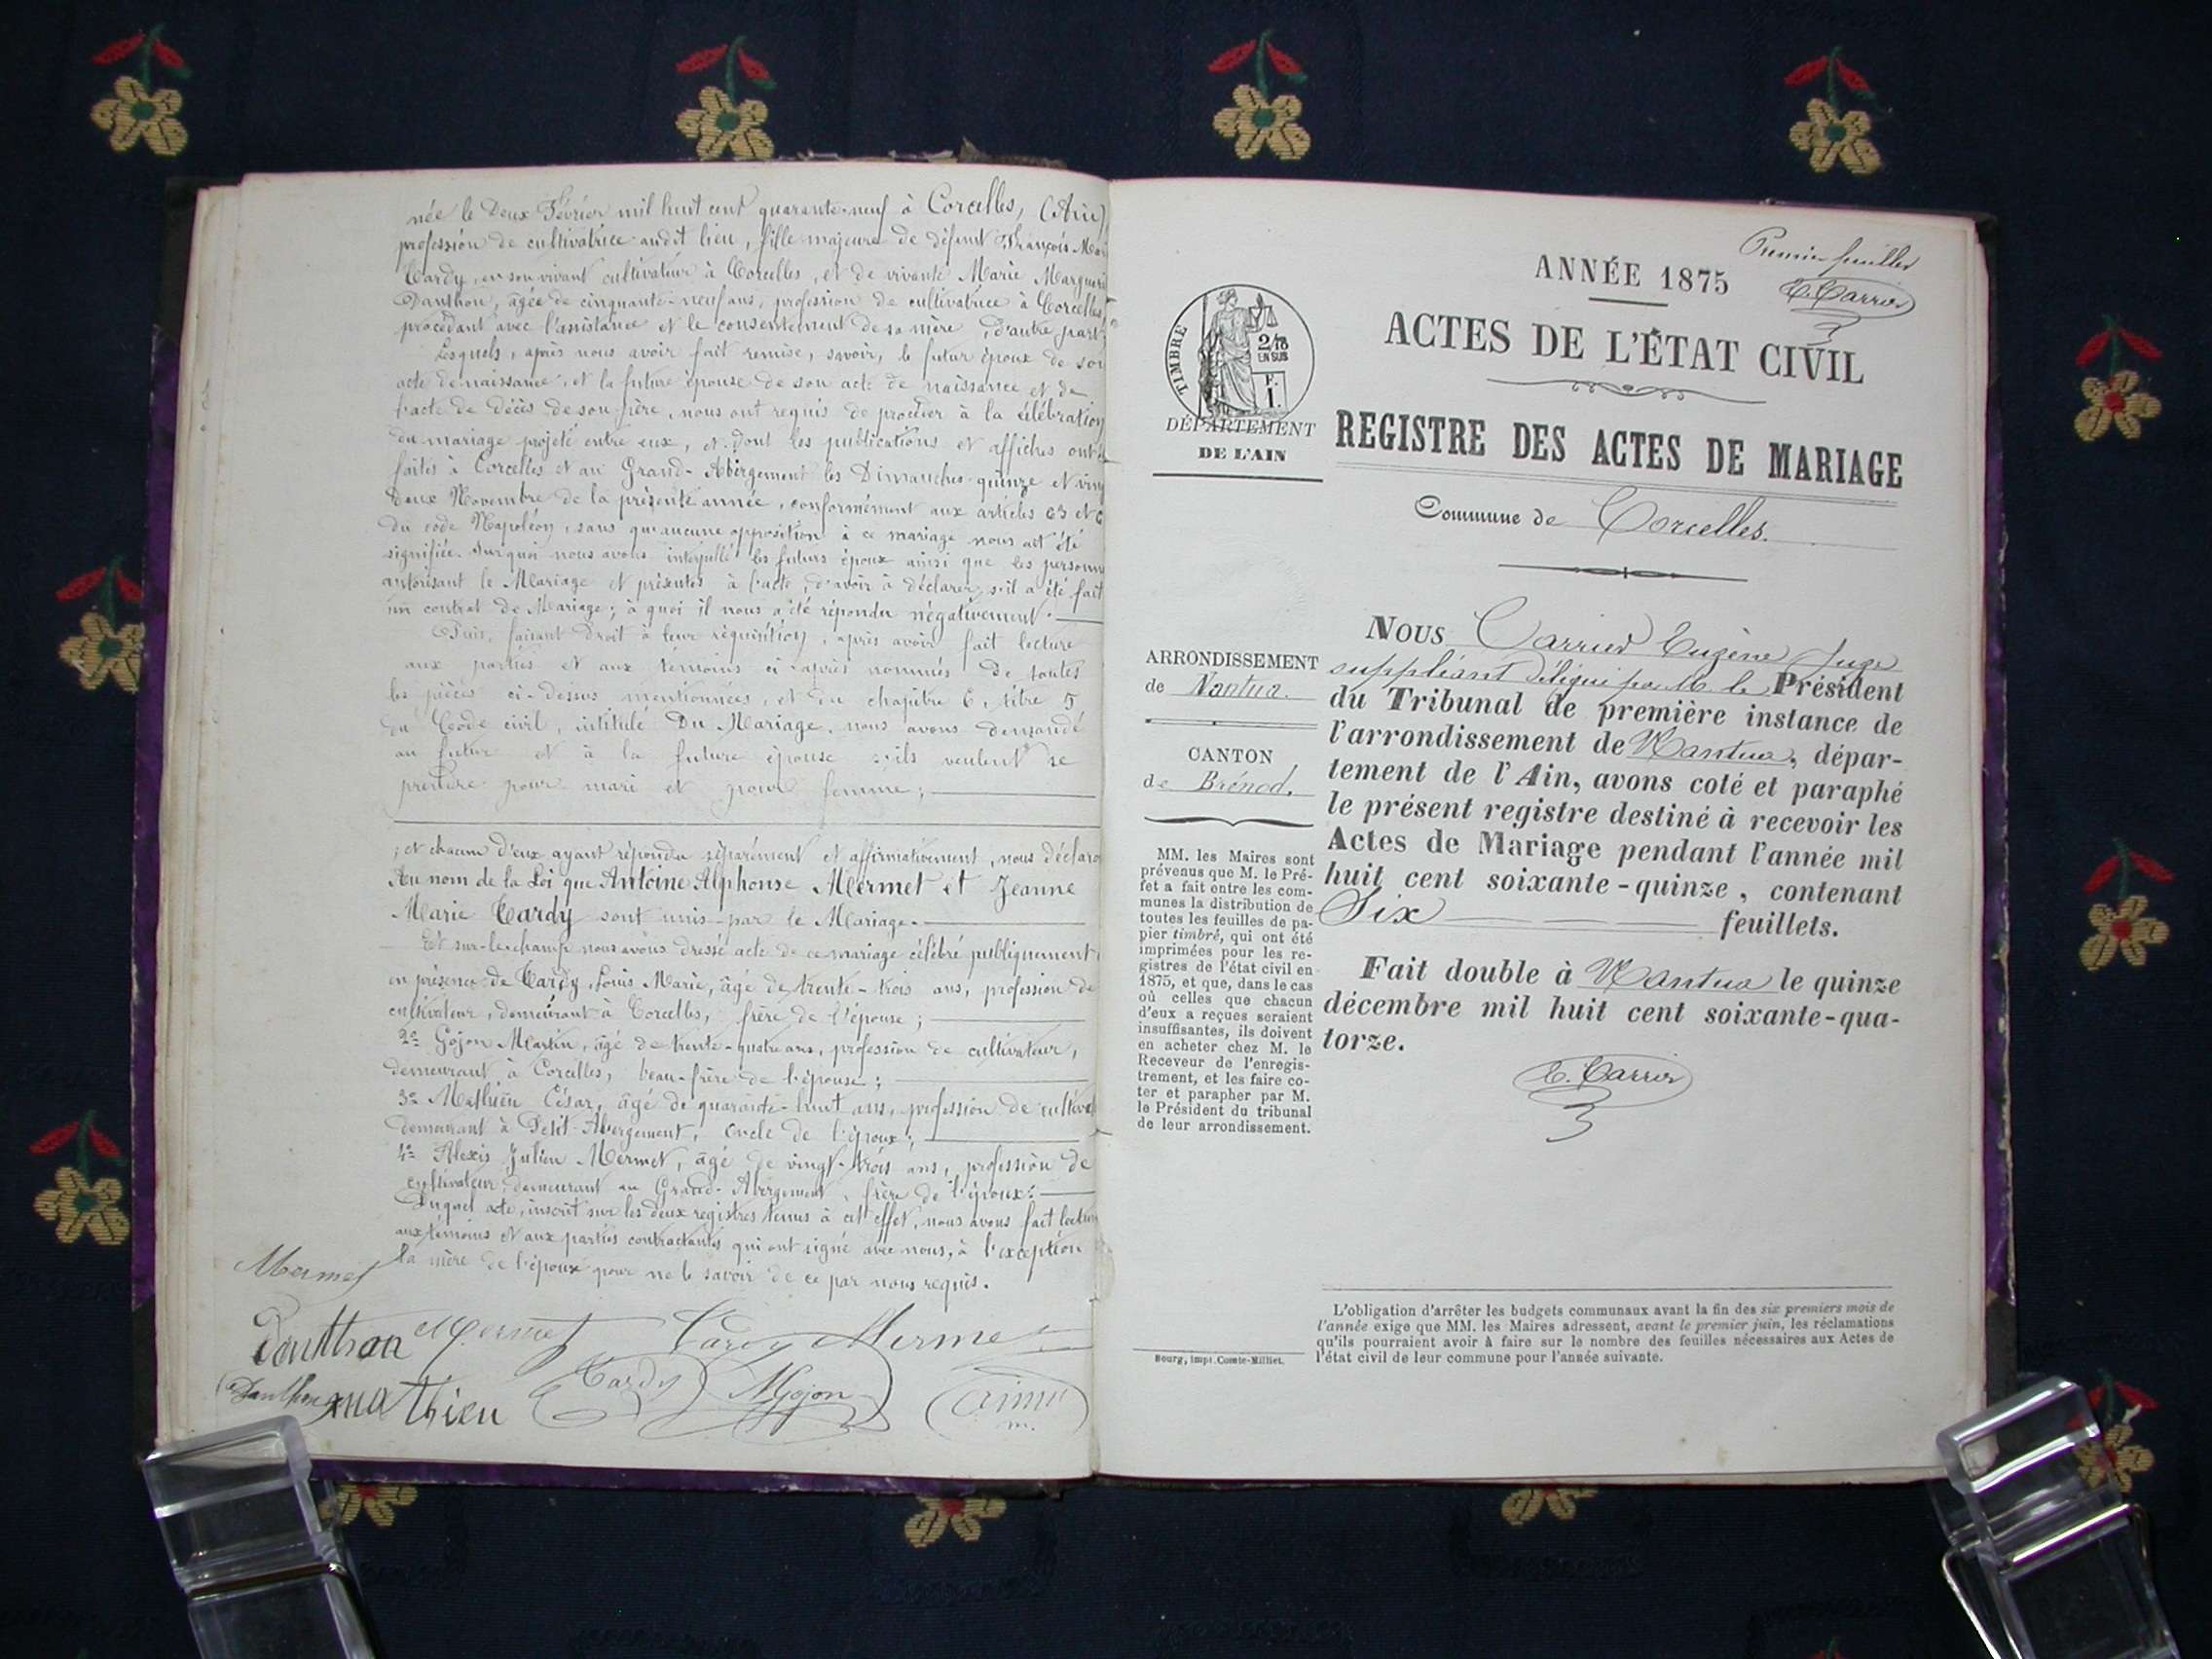 née le Deux Février mil huit cent quarante-neuf à Corcelles, (Ain)
profession de cultivatrice audit lieu, fille majeure de défunt François Mar
Cardy, en son vivant cultivateur à Corcelles, et de vivante Marie Marguer
Danthon, âgée de cinquante-neuf ans, profession de cultivatrice à Corcelles,
procédant avec l'assistance et le consentement de sa mère, d'autre part;
Lesquels, après nous avoir fait remise, savoir, le futur époux de son
acte de naissance, et la future épouse de son acte de naissance et de
l'acte de décès de son père, nous ont requis de procéder à la célébration
du mariage projeté entre eux, et dont les publications et affiches ont
faites à Corcelles et au Grand-Abergement les Dimanches quinze et ving
deux Novembre de la présente année, conformément aux articles 63 et
du code Napoléon, sans qu'aucune opposition à ce mariage nous ait été
signifiée. Sur quoi nous avons interpellé les futurs époux ainsi que les personn
autorisant le Mariage et présentes à l'acte, d'avoir à déclarer s'il a été fait
un contrat de Mariage; à quoi il nous a été répondu négativement.
Puis, faisant droit à leur réquisition, après avoir fait lecture
aux parties et aux témoins ci-après nommés de toutes
les pièces ci-dessus mentionnées, et du chapitre 6, titre 5
du Code civil, intitulé Du Mariage, nous avons demandé
au futur et à la future épouse s'ils veulent se
prendre pour mari et pour femme;
; et chacun d'eux ayant répondu séparément et affirmativement, nous déclaro
Au nom de la Loi que Antoine Alphonse Mermet et Jeanne
Marie Cardy sont unis par le Mariage.
Et sur-le-champ nous avons dressé acte de ce mariage célébré publiquement
en présence de Cardy, Louis Marie, âgé de trente-trois ans, profession de
cultivateur, demeurant à Corcelles, frère de l'épouse;
2e Gojon Martin, âgé de trente-quatre ans, profession de cultivateur,
demeurant à Corcelles, beau-frère de l'épouse;
3e Mathieu César, âgé de quarante-huit ans, profession de cultivat
demeurant à Petit-Abergement, oncle de l'époux;
4e Alexis Julien Mermet, âgé de vingt-trois ans, profession de
cultivateur, demeurant au Grand-Abergement, frère de l'époux.
Duquel acte, inscrit sur les deux registres tenus à cet effet, nous avons fait lecture
aux témoins et aux parties contractantes qui ont signé avec nous, à l'exception
la mère de l'époux pour ne le savoir de ce par nous requis.
Mermet
Danthon Mermet Cardy Mermet
Danthon mathieu Cardy MGojon
ANNÉE 1875
Premier feuillet
E. Carrier
ACTES DE L'ÉTAT CIVIL
TIMBRE
2/10
EN SUS
F.
1.
DÉPARTEMENT
DE L'AIN
REGISTRE DES ACTES DE MARIAGE
Commune de Corcelles.
ARRONDISSEMENT
de Nantua.
CANTON
de Brénod.
MM. les Maires sont
prévenus que M. le Pré-
fet a fait entre les com-
munes la distribution de
toutes les feuilles de pa-
pier timbré, qui ont été
imprimées pour les re-
gistres de l'état civil en
1875, et que, dans le cas
où celles que chacun
d'eux a reçues seraient
insuffisantes, ils doivent
en acheter chez M. le
Receveur de l'enregis-
trement, et les faire co-
ter et parapher par M.
le Président du tribunal
de leur arrondissement.
NOUS Carrier Eugène Juge
suppléant délégué par M. le Président
du Tribunal de première instance de
l'arrondissement de Nantua, dépar-
tement de l'Ain, avons coté et paraphé
le présent registre destiné à recevoir les
Actes de Mariage pendant l'année mil
huit cent soixante-quinze, contenant
Six feuillets.
Fait double à Nantua le quinze
décembre mil huit cent soixante-qua-
torze.
E. Carrier
L'obligation d'arrêter les budgets communaux avant la fin des six premiers mois de
l'année exige que MM. les Maires adressent, avant le premier juin, les réclamations
qu'ils pourraient avoir à faire sur le nombre des feuilles nécessaires aux Actes de
l'état civil de leur commune pour l'année suivante.
Bourg, impr. Comte-Milliet.